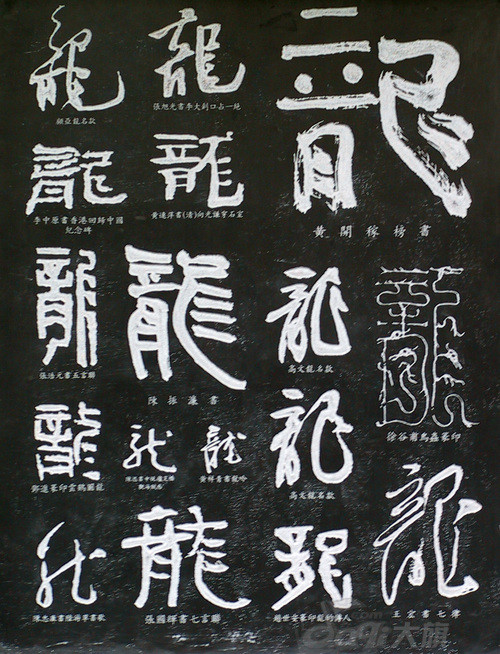 龍
顧亞龍名款
龍
張旭光書李大釗口占一絕
龍
黃開稼榜書
龍
李中原書香港回歸中國
紀念碑
龍
黃遠萍書(清)向光謙穿石室
龍
張浩元書五言聯
龍
陳振濂書
龍
高文龍名款
龍
徐谷甫鳥蟲篆印
龍
鄧進篆印雲鶴圖龍
龍
龍
黃祥青書龍吟
龍
高文龍名款
龍
王宏書七律
龍
龍
張國祥書七言聯
龍
趙世安篆印龍的傳人
大旗